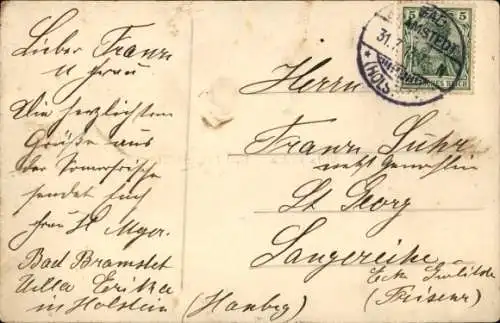 Lieber Franz
u Frau
Die herzlichsten
Grüße aus
der Sommerfrische
sendet Euch
Frau H Myer.
Bad Bramstet
Villa Erika
in Holstein
Herrn
Franz Suhr
nebst Gemahlin
St Georg
Langereihe
Ecke
(Friseur)
(Hambg)
5 5
BAD
BRAMSTEDT
31.7
(HOLST.)